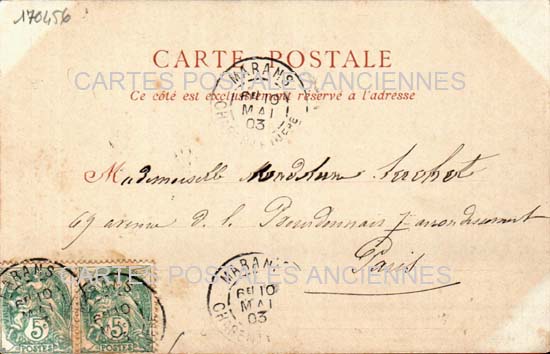 170456
CARTE POSTALE
CARTES POSTALES ANCIENNES
Ce côté est exclusivement réservé a l'adresse
MARANS
10
MAI
03
Mademoiselle
69 avenue d. l. Bourdonnais 7 arrondissement
Paris
CARTES POSTALES ANCIENNES
MARANS
10
MAI
03
MARANS
5c
POSTES
5c
POSTES